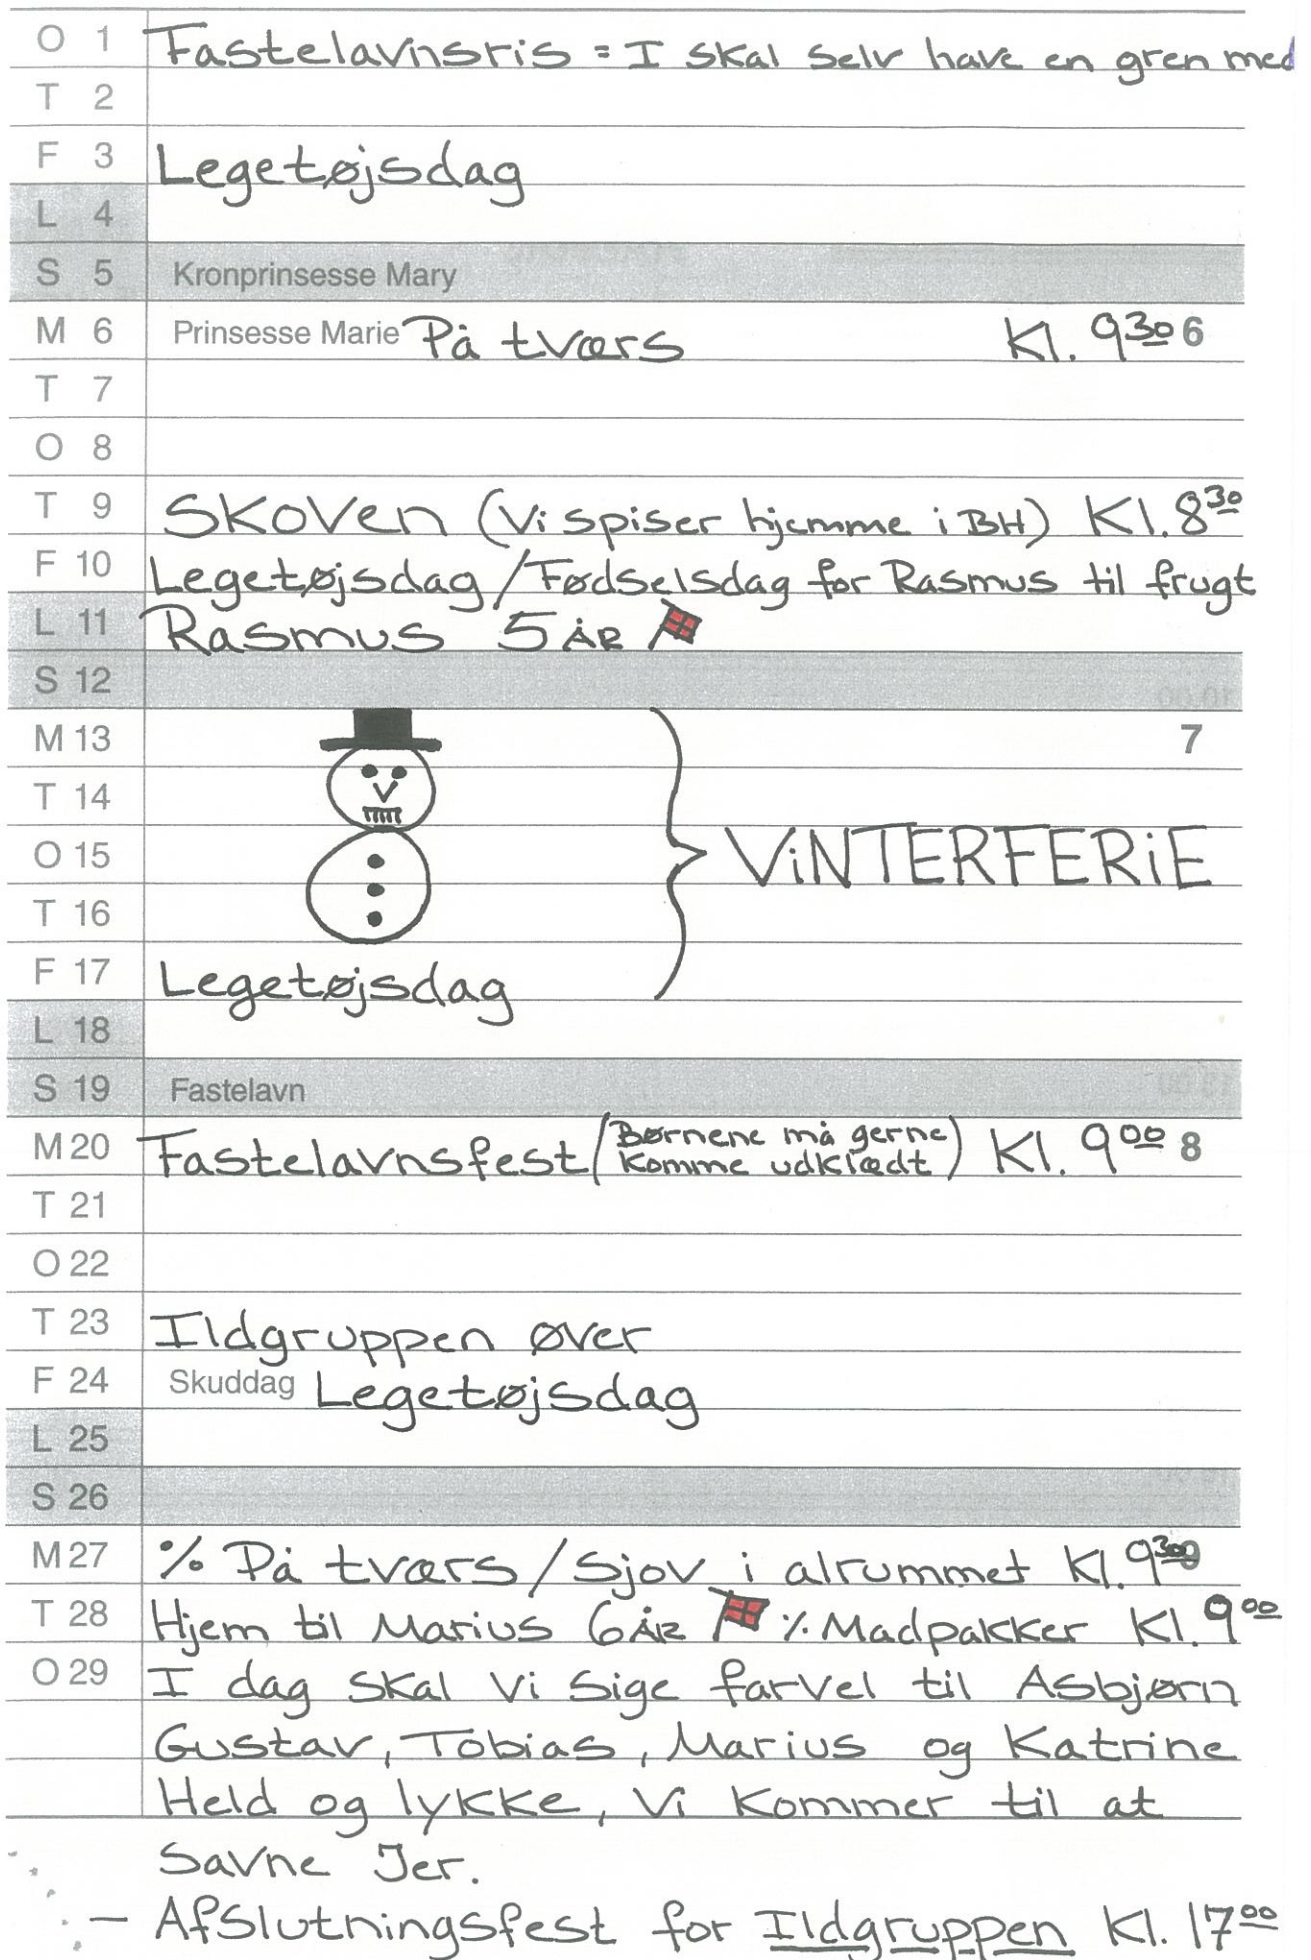 O 1 Fastelavnsris = I skal selv have en gren med
T 2
F 3 Legetøjsdag
L 4
S 5 Kronprinsesse Mary
M 6 Prinsesse Marie På tværs Kl. 9 30 6
T 7
O 8
T 9 Skoven (Vi spiser hjemme i BH) Kl. 8 30
F 10 Legetøjsdag / Fødselsdag for Rasmus til frugt
L 11 Rasmus 5 ÅR
S 12
M 13 7
T 14
O 15 ViNTERFERiE
T 16
F 17 Legetøjsdag
L 18
S 19 Fastelavn
M 20 Fastelavnsfest (Børnene må gerne komme udklædt) Kl. 9 00 8
T 21
O 22
T 23 Ildgruppen øver
F 24 Skuddag Legetøjsdag
L 25
S 26
M 27 % På tværs / Sjov i alrummet Kl. 9 30
T 28 Hjem til Marius 6 ÅR % Madpakker Kl. 9 00
O 29 I dag skal vi sige farvel til Asbjørn
Gustav, Tobias, Marius og Katrine
Held og lykke, Vi kommer til at
Savne Jer.
– Afslutningsfest for Ildgruppen Kl. 17 00